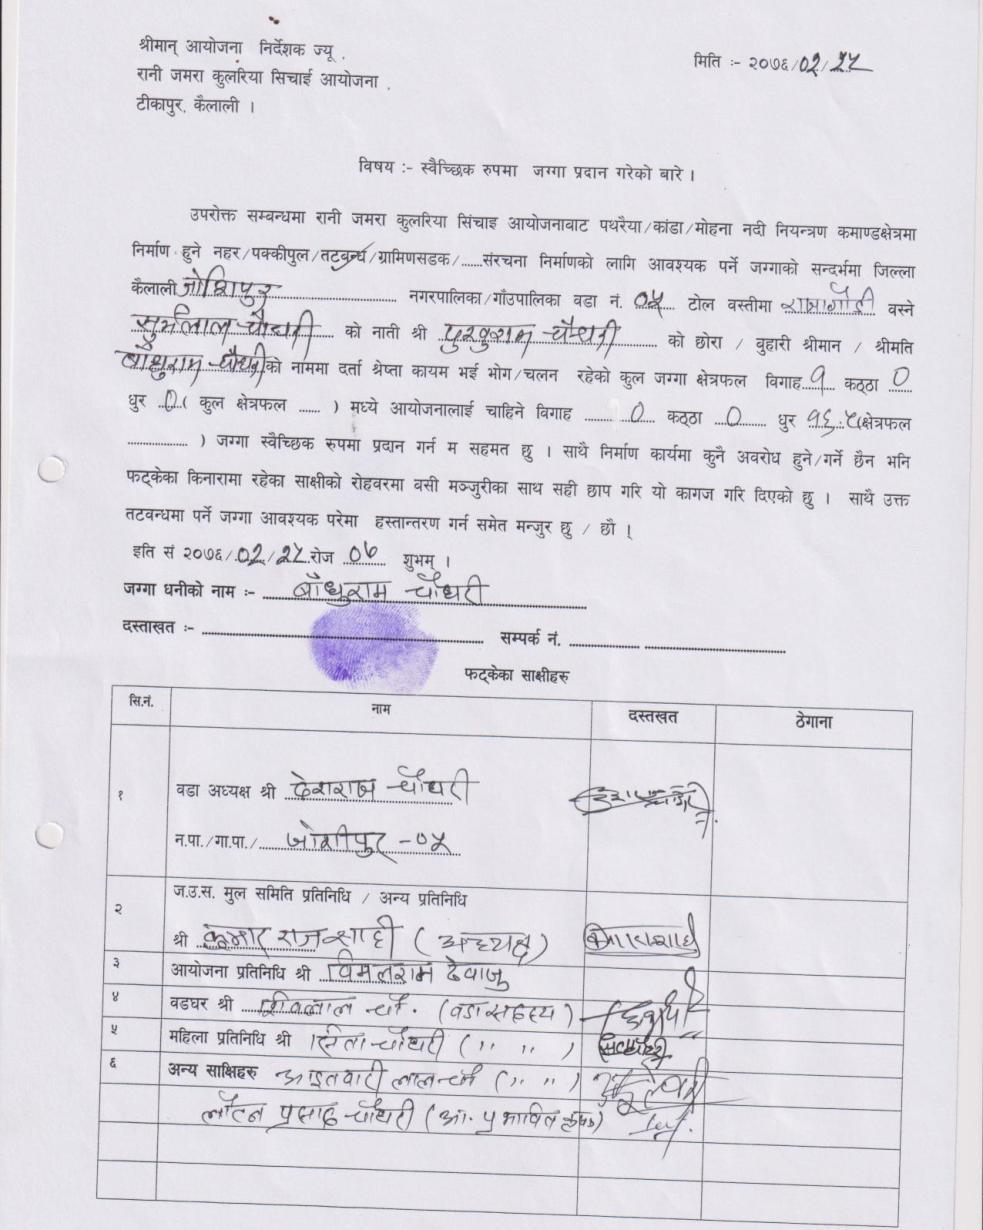 श्रीमान् आयोजना निर्देशक ज्यू ,
मिति :- २०७६/02/25
रानी जमरा कुलरिया सिचाई आयोजना ,
टीकापुर, कैलाली ।
विषय :- स्वैच्छिक रुपमा जग्गा प्रदान गरेको बारे ।
उपरोक्त सम्बन्धमा रानी जमरा कुलरिया सिंचाइ आयोजनावाट पथरैया/कांडा/मोहना नदी नियन्त्रण कमाण्डक्षेत्रमा
निर्माण हुने नहर/पक्कीपुल/तटबन्ध/ग्रामिणसडक/......संरचना निर्माणको लागि आवश्यक पर्ने जग्गाको सन्दर्भमा जिल्ला
कैलाली जोशिपुर नगरपालिका/गाँउपालिका वडा नं. ०५ टोल वस्तीमा वस्ने
चौधरी को नाती श्री चौधरी को छोरा / बुहारी श्रीमान / श्रीमति
बाँधुराम चौधरी को नाममा दर्ता श्रेष्ता कायम भई भोग/चलन रहेको कुल जग्गा क्षेत्रफल विगाह १ कठ्ठा 0
धुर 0 ( कुल क्षेत्रफल ...... ) मध्ये आयोजनालाई चाहिने विगाह 0 कठ्ठा 0 धुर १६.५ (क्षेत्रफल
.................. ) जग्गा स्वैच्छिक रुपमा प्रदान गर्न म सहमत छु । साथै निर्माण कार्यमा कुनै अवरोध हुने/गर्ने छैन भनि
फट्केका किनारामा रहेका साक्षीको रोहवरमा वसी मञ्जुरीका साथ सही छाप गरि यो कागज गरि दिएको छु । साथै उक्त
तटवन्धमा पर्ने जग्गा आवश्यक परेमा हस्तान्तरण गर्न समेत मन्जुर छु / छौ ।
इति सं २०७६/02/25 रोज 06 शुभम् ।
जग्गा धनीको नाम :- बाँधुराम चौधरी
दस्ताखत :- सम्पर्क नं.
फट्केका साक्षीहरु
सि.नं. नाम दस्तखत ठेगाना
१ वडा अध्यक्ष श्री देशराज चौधरी
न.पा./गा.पा./ जोशीपुर -०५
२ ज.उ.स. मुल समिति प्रतिनिधि / अन्य प्रतिनिधि
श्री कुमार राज शाही (अध्यक्ष)
३ आयोजना प्रतिनिधि श्री विमलराम देवाजु
४ वडघर श्री चौ. (वडा सदस्य)
५ महिला प्रतिनिधि श्री चौधरी ( ,, ,, )
६ अन्य साक्षिहरु लाल चौ ( ,, ,, )
लौटन प्रसाद चौधरी